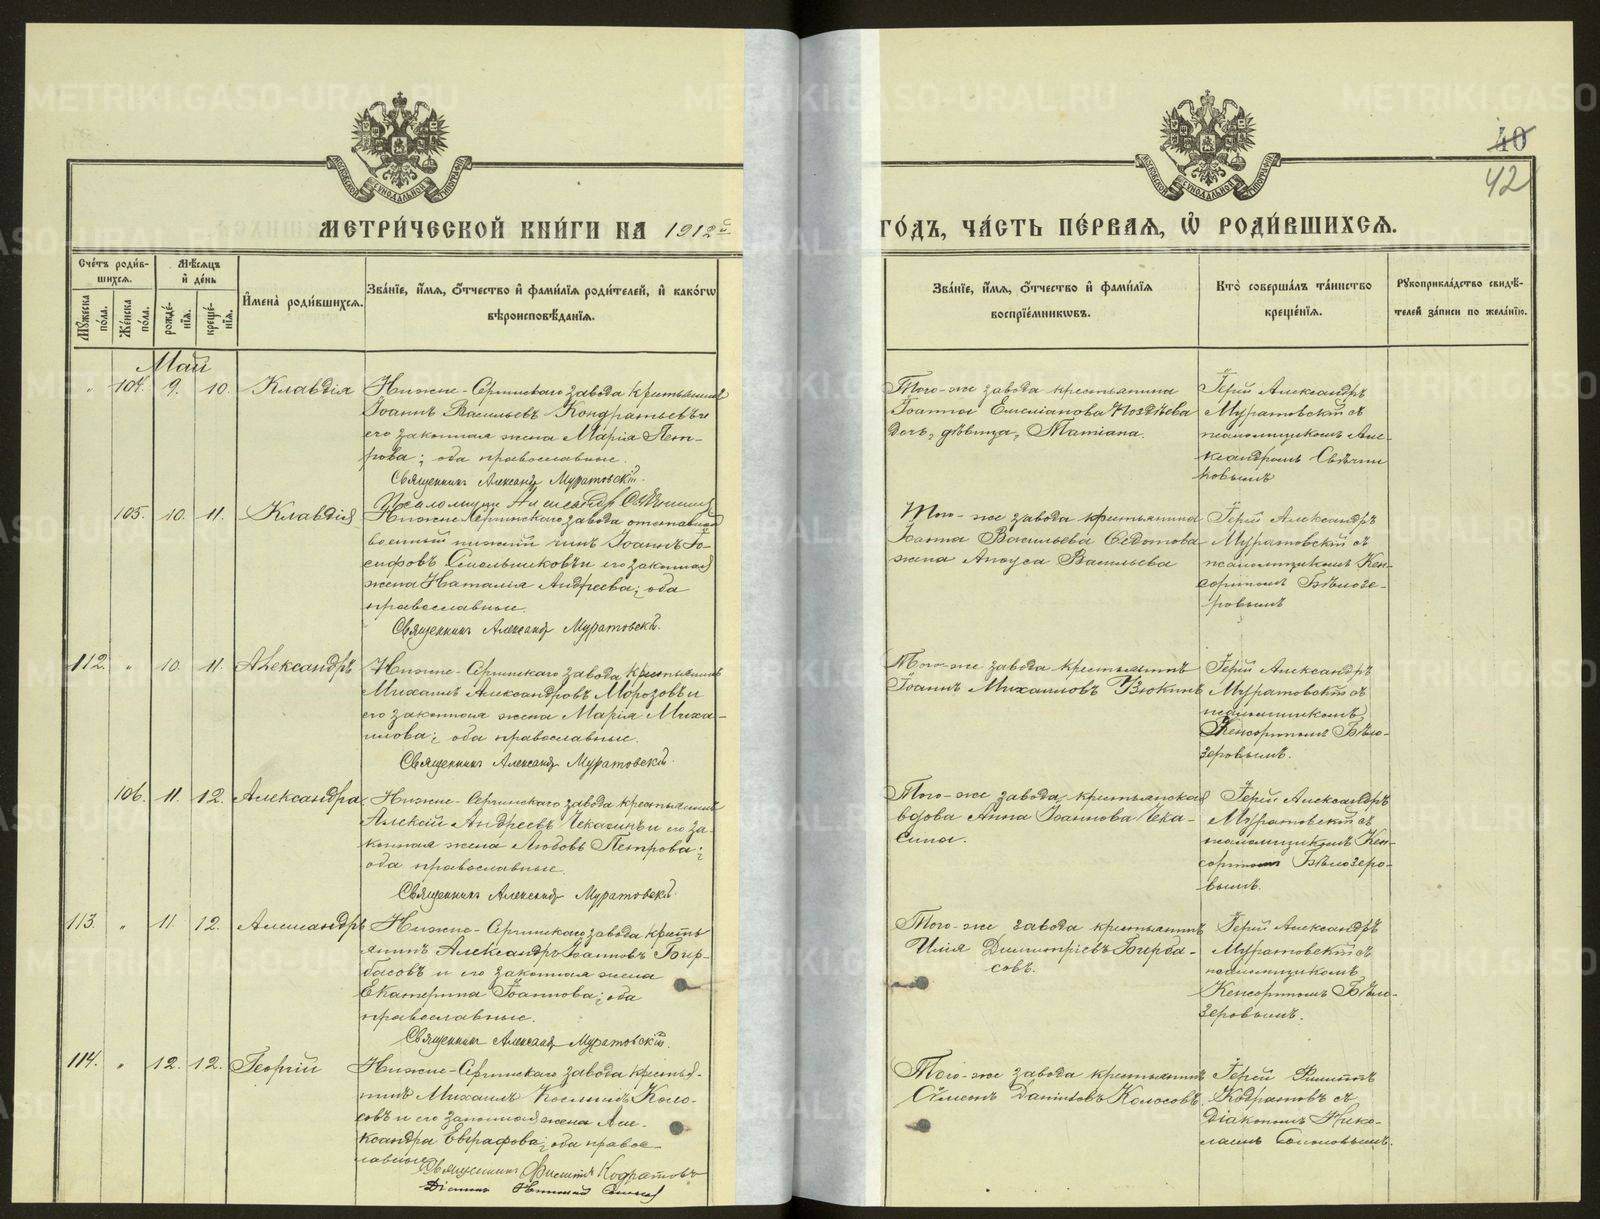 40
42
МЕТРИЧЕСКОЙ КНИГИ НА 1912й ГОДЪ, ЧАСТЬ ПЕРВАЯ, Ѡ РОДИВШИХСЯ.
Счетъ родившихся.
Мужеска пола.
Женска пола.
Мѣсяцъ и день
рожденія.
крещенія.
Имена родившихся.
Званіе, имя, отчество и фамилія родителей, и какогѡ
вѣроисповѣданія.
Званіе, имя, отчество и фамилія
воспріемникѡвъ.
Кто совершалъ таинство
крещенія.
Рукоприкладство свидѣ-
телей записи по желанію.
Май
" 104. 9. 10. Клавдія
Нижне-Сергинскаго завода крестьянинъ
Іоаннъ Васильевъ Кондратьевъ и
его законная жена Марія Пет-
рова; оба православные.
Священникъ Александр Муратовскій.
Псаломщик Александр Свѣчниковъ
Того-же завода крестьянина
Іоанна Емеліанова Ноздѣева
дочь, дѣвица, Татіана.
Іерей Александръ
Муратовскій съ
псаломщикомъ Але-
ксандромъ Свѣчни
ковымъ
105. 10. 11. Клавдія
Нижне Сергинскаго завода отставной
военный нижній чинъ Іоаннъ Іо-
сифовъ Смольниковъ и его законная
жена Наталія Андреева; оба
православные.
Священникъ Александр Муратовскій.
Того-же завода крестьянина
Іоанна Васильева Ѳедотова
жена Анѳуса Васильева
Іерей Александръ
Муратовскій съ
псаломщикомъ Кен-
сориномъ Бѣлозе-
ровымъ
112. " 10. 11. Александръ
Нижне-Сергинскаго завода крестьянинъ
Михаилъ Александровъ Морозовъ и
его законная жена Марія Миха-
илова; оба православные.
Священникъ Александр Муратовскій.
Того-же завода крестьянинъ
Іоаннъ Михаиловъ Вяюкинъ
Іерей Александръ
Муратовскій съ
псаломщикомъ
Кенсориномъ Бѣло-
зеровымъ.
106. 11. 12. Александра
Нижне-Сергинскаго завода крестьянинъ
Алексій Андреевъ Чекасинъ и его за-
конная жена Любовь Петрова;
оба православные.
Священникъ Александр Муратовскій.
Того-же завода, крестьянская
вдова Анна Іоаннова Чека-
сина.
Іерей Александръ
Муратовскій съ
псаломщикомъ Кен-
сориномъ Бѣлозеро-
вымъ.
113. " 11. 12. Александръ
Нижне-Сергинскаго завода кресть
янинъ Александръ Іоанновъ Бер-
басовъ и его законная жена
Екатерина Іоаннова; оба
православные.
Священникъ Александр Муратовскій.
Того-же завода крестьянинъ
Илія Димитріевъ Берба-
совъ.
Іерей Александръ
Муратовскій съ
псаломщикомъ
Кенсориномъ Бѣло-
зеровымъ.
114. " 12. 12. Георгій
Нижне-Сергинскаго завода крестья-
нинъ Михаилъ Косминъ Коло-
совъ и его законная жена Але-
ксандра Евграфова; оба право-
славные.
Священникъ Филиппъ Кодратовъ
Діаконъ Николай
Того-же завода крестьянинъ
Сѵмеонъ Даниловъ Колосовъ.
Іерей Филиппъ
Кодратовъ съ
діакономъ Нико-
лаемъ
METRIKI.GASO-URAL.RU